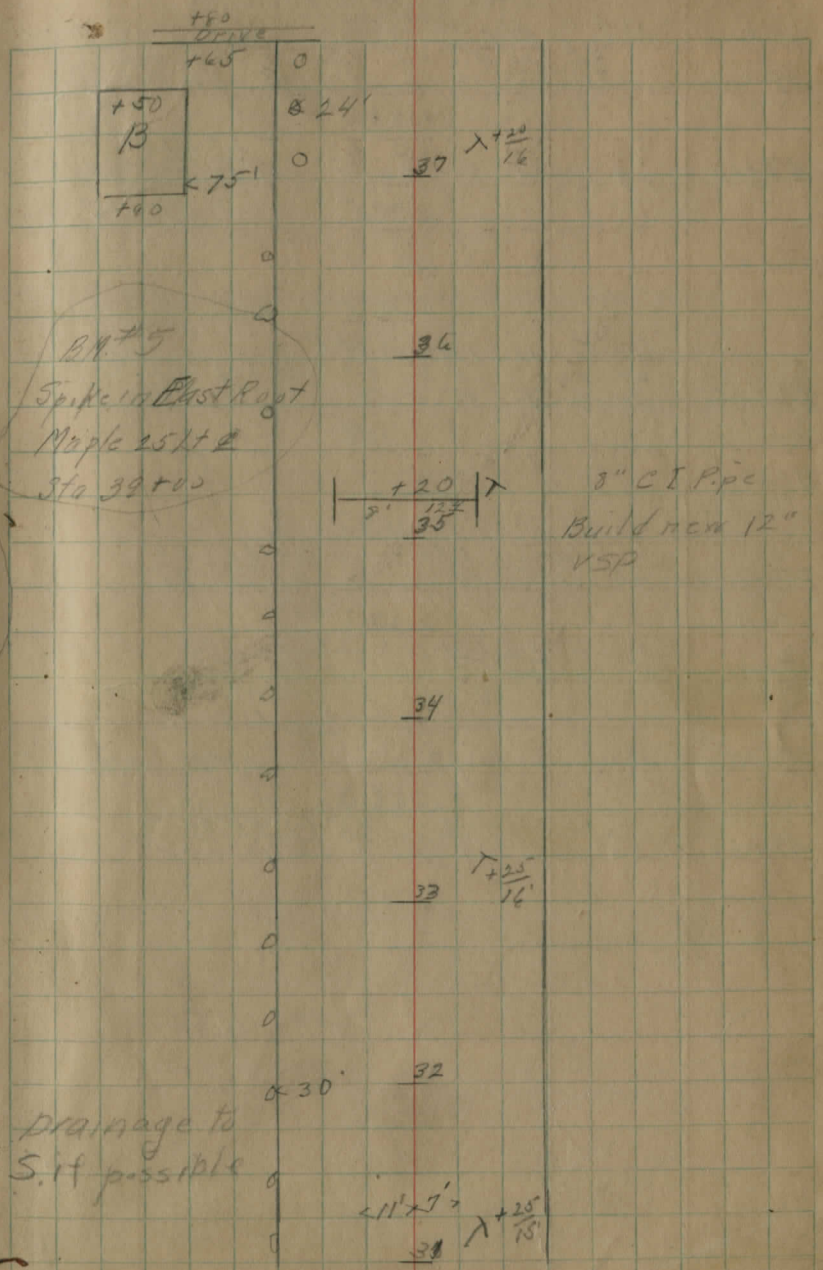 +80
Drive
+65
24'
+50
B
+20
16
37
75'
+40
36
B.M. #5
Spike in East Root
Maple 25 Lt ℄
Sta 39+00
+20
8'
35
8" C I Pipe
Build new 12"
VSP
34
+25
16'
33
32
30'
Drainage to
S. if possible
11' 7'
+25
15'
31